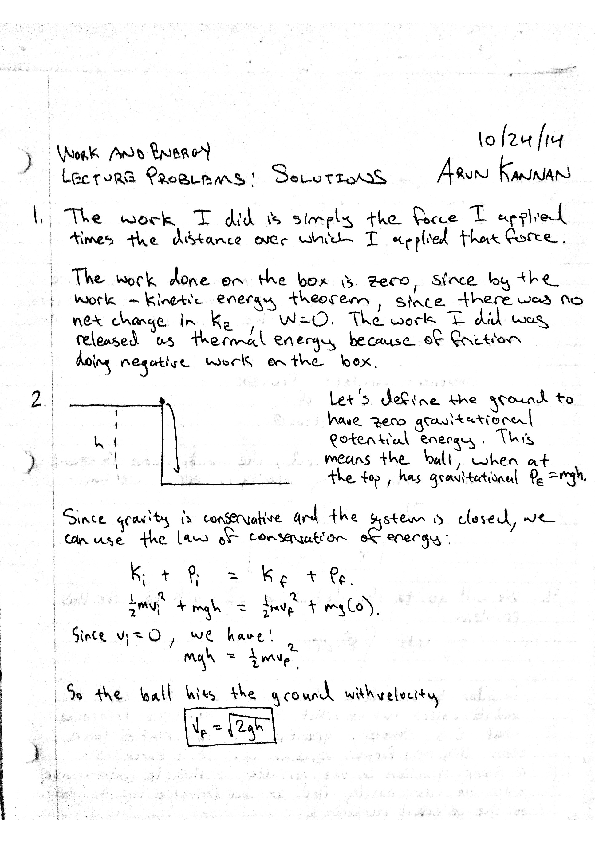 10/24/14
WORK AND ENERGY
LECTURE PROBLEMS: SOLUTIONS ARUN KANNAN
1. The work I did is simply the force I applied
times the distance over which I applied that force.
The work done on the box is zero, since by the
work-kinetic energy theorem, since there was no
net change in KE, W=0. The work I did was
released as thermal energy because of friction
doing negative work on the box.
2.
h
Let's define the ground to
have zero gravitational
potential energy. This
means the ball, when at
the top, has gravitational PE=mgh.
Since gravity is conservative and the system is closed, we
can use the law of conservation of energy:
Ki + Pi = Kf + Pf.
½mvi² + mgh = ½mvf² + mg(0).
Since vi=0, we have:
mgh = ½mvf².
So the ball hits the ground with velocity
Vf = √2gh